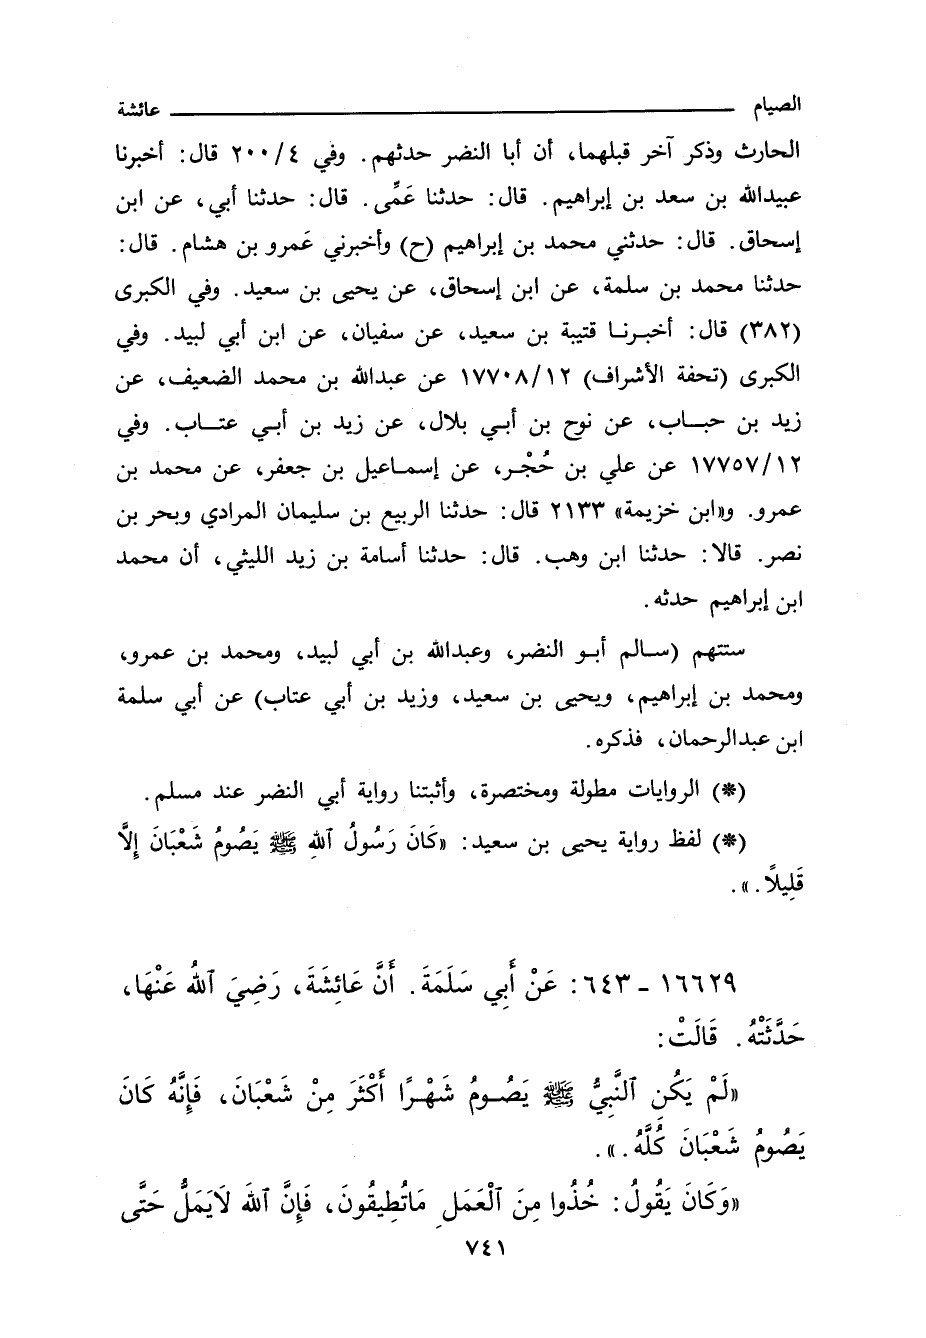 الصيام ــــــــــــــــــــــــــــــــــــــــ عائشة
الحارث وذكر آخر قبلهما، أن أبا النضر حدثهم. وفي ٤/ ٢٠٠ قال: أخبرنا
عبيدالله بن سعد بن إبراهيم. قال: حدثنا عَمِّى. قال: حدثنا أبي، عن ابن
إسحاق. قال: حدثني محمد بن إبراهيم (ح) وأخبرني عَمرو بن هشام. قال:
حدثنا محمد بن سلمة، عن ابن إسحاق، عن يحيى بن سعيد. وفي الكبرى
(٣٨٢) قال: أخبرنا قتيبة بن سعيد، عن سفيان، عن ابن أبي لبيد. وفي
الكبرى (تحفة الأشراف) ١٢/ ١٧٧٠٨ عن عبدالله بن محمد الضعيف، عن
زيد بن حباب، عن نوح بن أبي بلال، عن زيد بن أبي عتاب. وفي
١٢/ ١٧٧٥٧ عن علي بن حُجْر، عن إسماعيل بن جعفر، عن محمد بن
عمرو. و«ابن خزيمة» ٢١٣٣ قال: حدثنا الربيع بن سليمان المرادي وبحر بن
نصر. قالا: حدثنا ابن وهب. قال: حدثنا أسامة بن زيد الليثي، أن محمد
ابن إبراهيم حدثه.
ستتهم (سالم أبو النضر، وعبدالله بن أبي لبيد، ومحمد بن عمرو،
ومحمد بن إبراهيم، ويحيى بن سعيد، وزيد بن أبي عتاب) عن أبي سلمة
ابن عبدالرحمان، فذكره.
(*) الروايات مطولة ومختصرة، وأثبتنا رواية أبي النضر عند مسلم.
(*) لفظ رواية يحيى بن سعيد: «كَانَ رَسُولُ ٱللهِ ﷺ يَصُومُ شَعْبَانَ إِلَّا
قَلِيلاً.».
١٦٦٢٩ - ٦٤٣: عَنْ أَبِي سَلَمَةَ. أَنَّ عَائِشَةَ، رَضِيَ ٱللهُ عَنْهَا،
حَدَّثَتْهُ. قَالَتْ:
«لَمْ يَكُنِ ٱلنَّبِيُّ ﷺ يَصُومُ شَهْرًا أَكْثَرَ مِنْ شَعْبَانَ، فَإِنَّهُ كَانَ
يَصُومُ شَعْبَانَ كُلَّهُ.».
«وَكَانَ يَقُولُ: خُذُوا مِنَ ٱلْعَمَلِ مَاتُطِيقُونَ، فَإِنَّ ٱللهَ لَايَمَلُّ حَتَّى
٧٤١